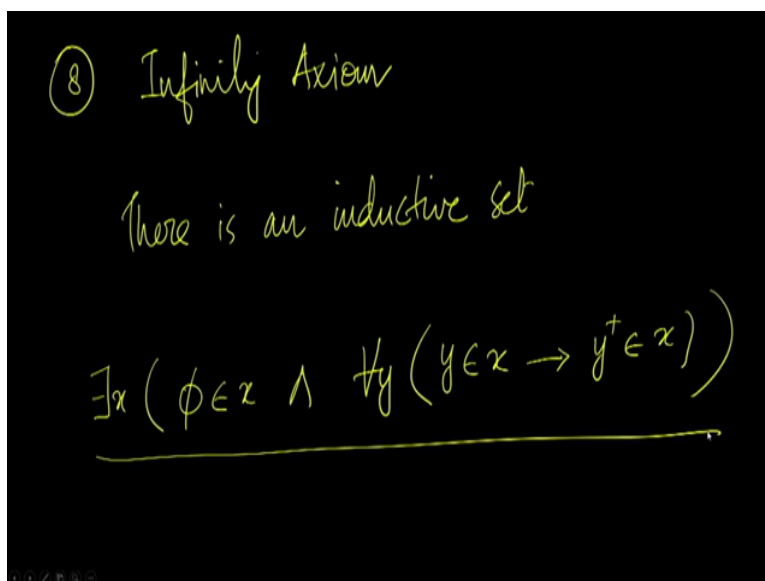 ⑧ Infinity Axiom
There is an inductive set
∃x ( ϕ ∈ x ∧ ∀y ( y ∈ x → y⁺ ∈ x ) )